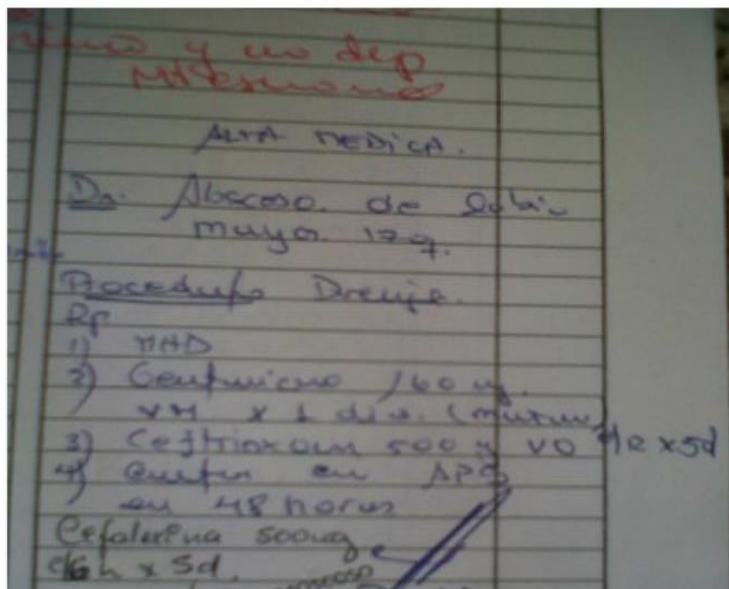 y no dep
ALTA MEDICA.
Dn. Absceso de Labio
mayor izq.
Procedimto Drenaje.
Rp
1) MHD
2) Gentamicina 160 mg.
VM x 1 dia.
3) Ceftriaxona 500 mg VO x 5d
4) Control en APS
en 48 horas
Cefalexina 500mg
c/6h x 5d.